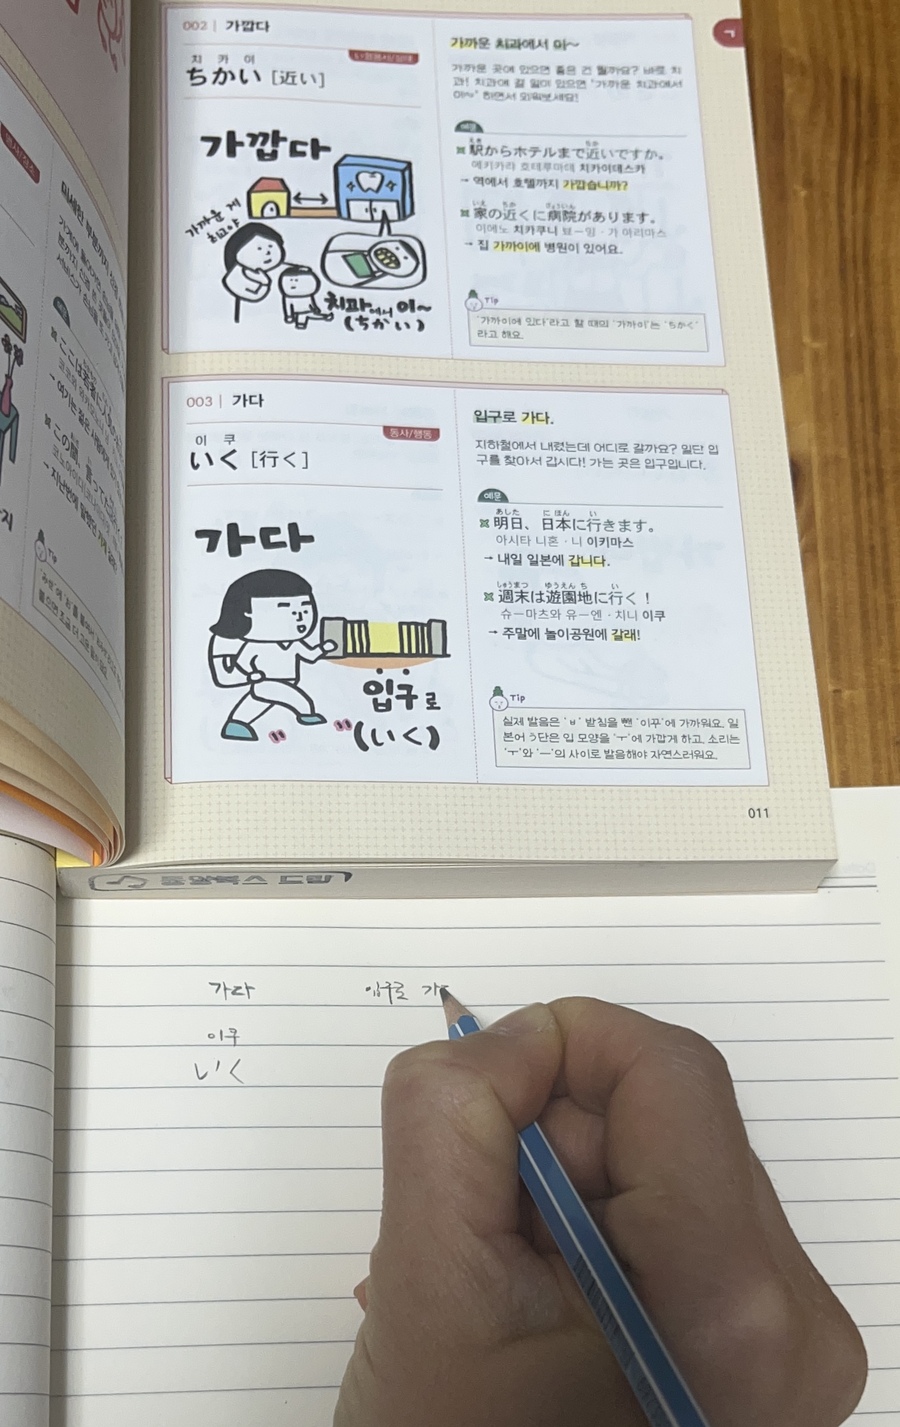 002 | 가깝다
치 카 이
ちかい [近い]
가깝다
가까운 게
최고야
치과에서 이~
(ちかい)
가까운 치과에서 이~
가까운 곳에 있으면 좋은 건 뭘까요? 바로 치
과! 치과에 갈 일이 있으면 '가까운 치과에서
이~' 하면서 외워보세요!
예문
えき ちか
駅からホテルまで近いですか。
에키카라 호테루마데 치카이데스카
→ 역에서 호텔까지 가깝습니까?
いえ ちか びょういん
家の近くに病院があります。
이에노 치카쿠니 뵤-잉·가 아리마스
→ 집 가까이에 병원이 있어요.
Tip
'가까이에 있다'라고 할 때의 '가까이'는 'ちかく'
라고 해요.
ㄱ
003 | 가다
동사/행동
이 쿠
いく [行く]
가다
입구로
(いく)
입구로 가다.
지하철에서 내렸는데 어디로 갈까요? 일단 입
구를 찾아서 갑시다! 가는 곳은 입구입니다.
예문
あした に ほん い
明日、日本に行きます。
아시타 니혼·니 이키마스
→ 내일 일본에 갑니다.
しゅうまつ ゆうえん ち い
週末は遊園地に行く！
슈-마츠와 유-엔·치니 이쿠
→ 주말에 놀이공원에 갈래!
Tip
실제 발음은 'ㅂ' 받침을 뺀 '이꾸'에 가까워요. 일
본어 う단은 입 모양을 'ㅜ'에 가깝게 하고, 소리는
'ㅜ'와 'ㅡ'의 사이로 발음해야 자연스러워요.
011
가다 입구로 가
이쿠
いく